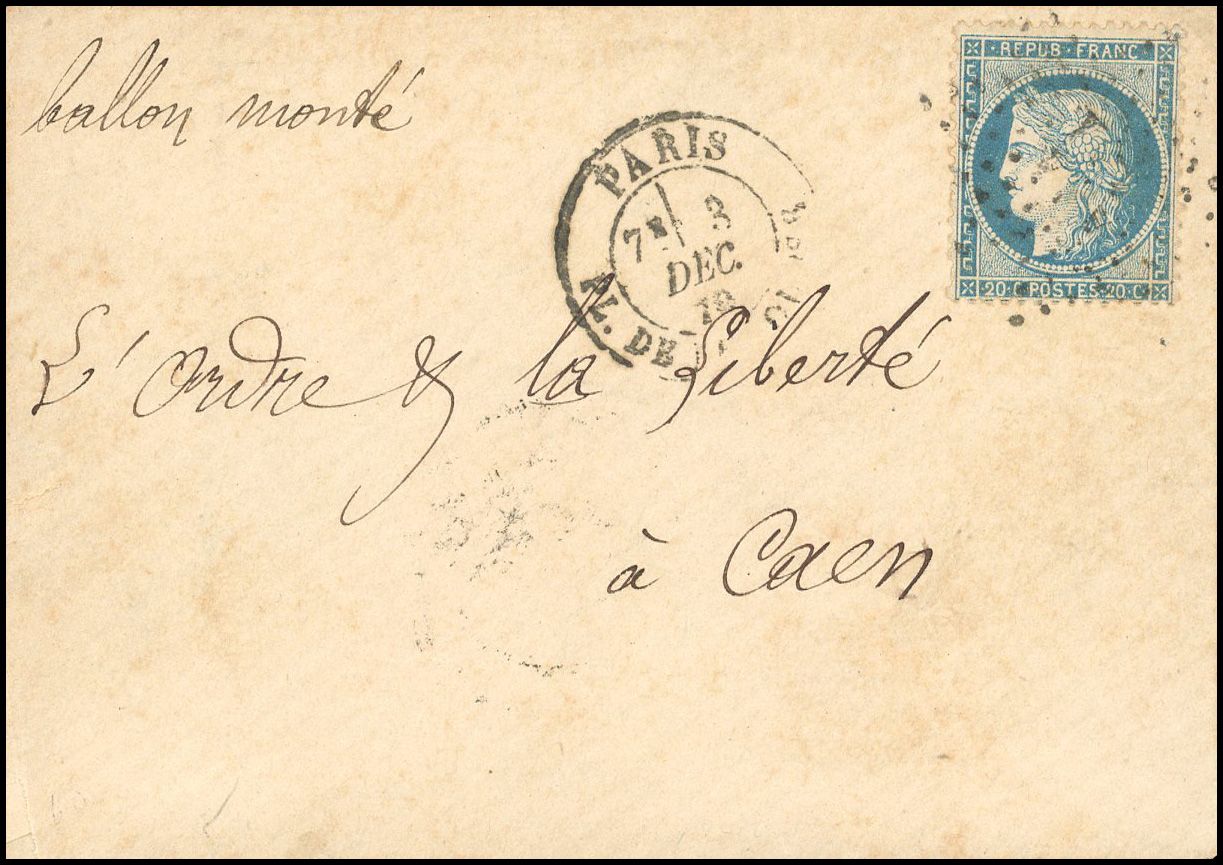 ballon monté
REPUB FRANC
20 C POSTES 20 C
PARIS
3
DEC.
PL. DE
L'Ordre & la Liberté
à Caen